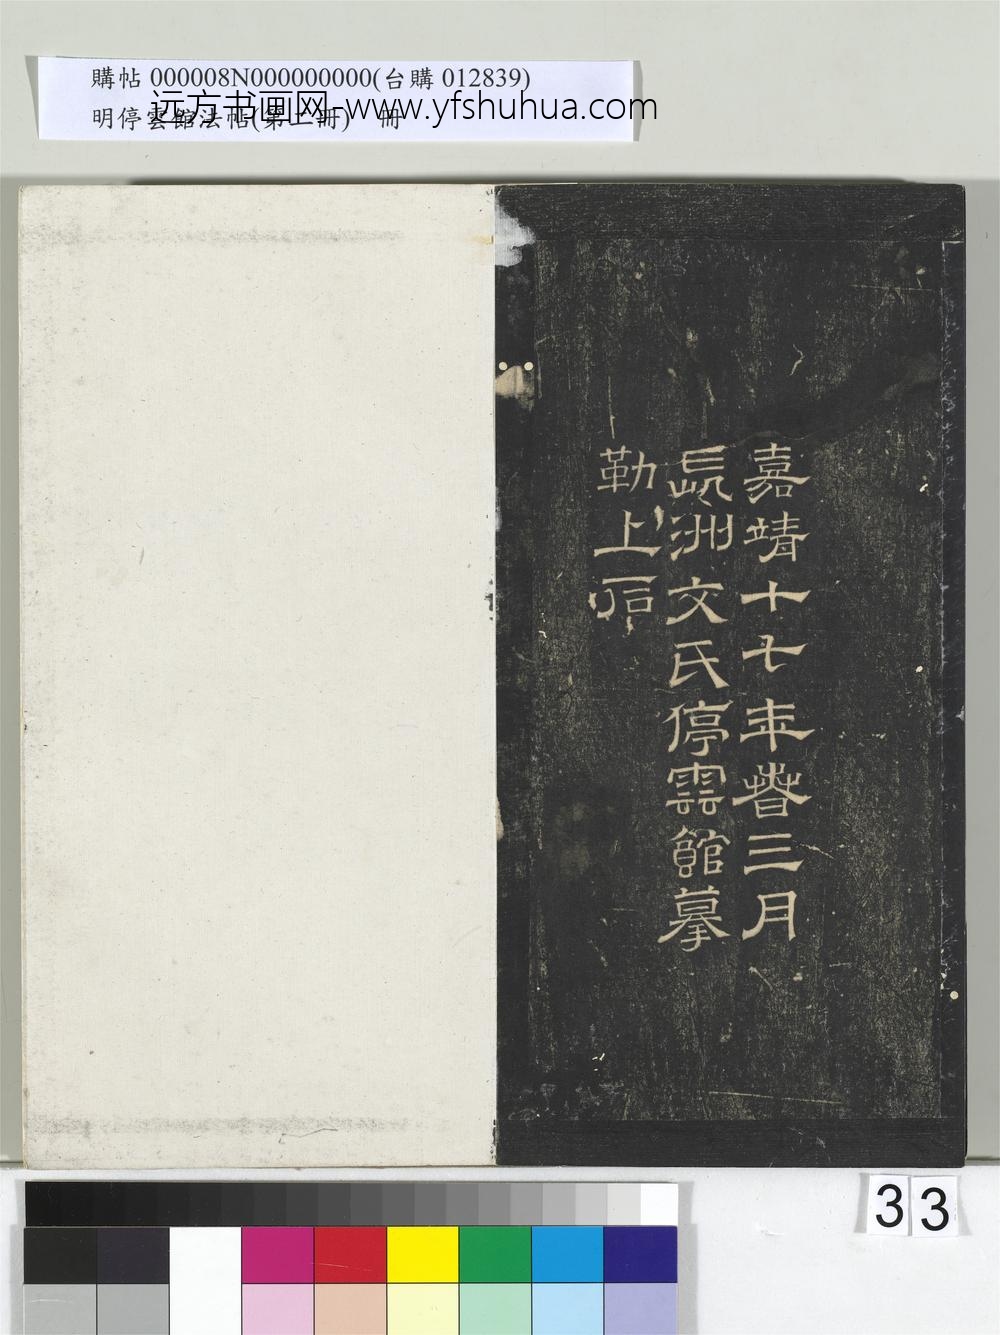 購帖 000008N000000000(台購 012839)
明停雲館法帖(第二冊) 冊
远方书画网-www.yfshuhua.com
嘉靖十七年春三月
長洲文氏停雲館摹
勒上石
33